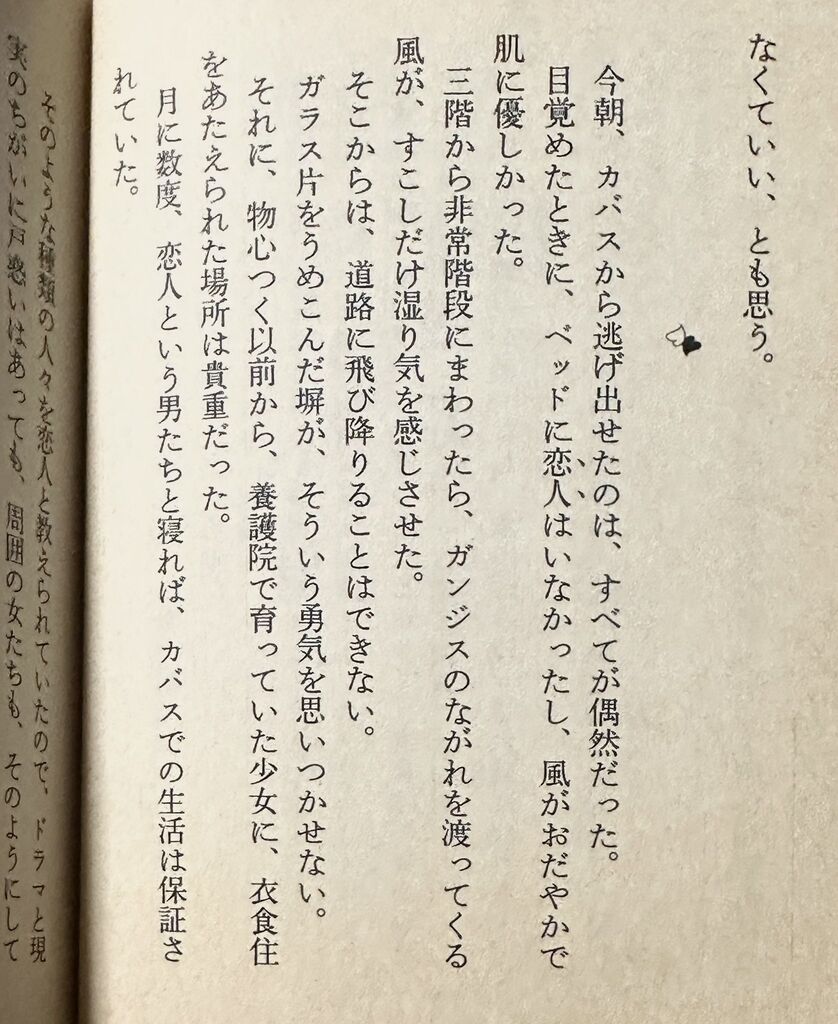 なくていい、とも思う。
今朝、カバスから逃げ出せたのは、すべてが偶然だった。
目覚めたときに、ベッドに恋人はいなかったし、風がおだやかで
肌に優しかった。
三階から非常階段にまわったら、ガンジスのながれを渡ってくる
風が、すこしだけ湿り気を感じさせた。
そこからは、道路に飛び降りることはできない。
ガラス片をうめこんだ塀が、そういう勇気を思いつかせない。
それに、物心つく以前から、養護院で育っていた少女に、衣食住
をあたえられた場所は貴重だった。
月に数度、恋人という男たちと寝れば、カバスでの生活は保証さ
れていた。
そのような種類の人々を恋人と教えられていたので、ドラマと現
実のちがいに戸惑いはあっても、周囲の女たちも、そのようにして